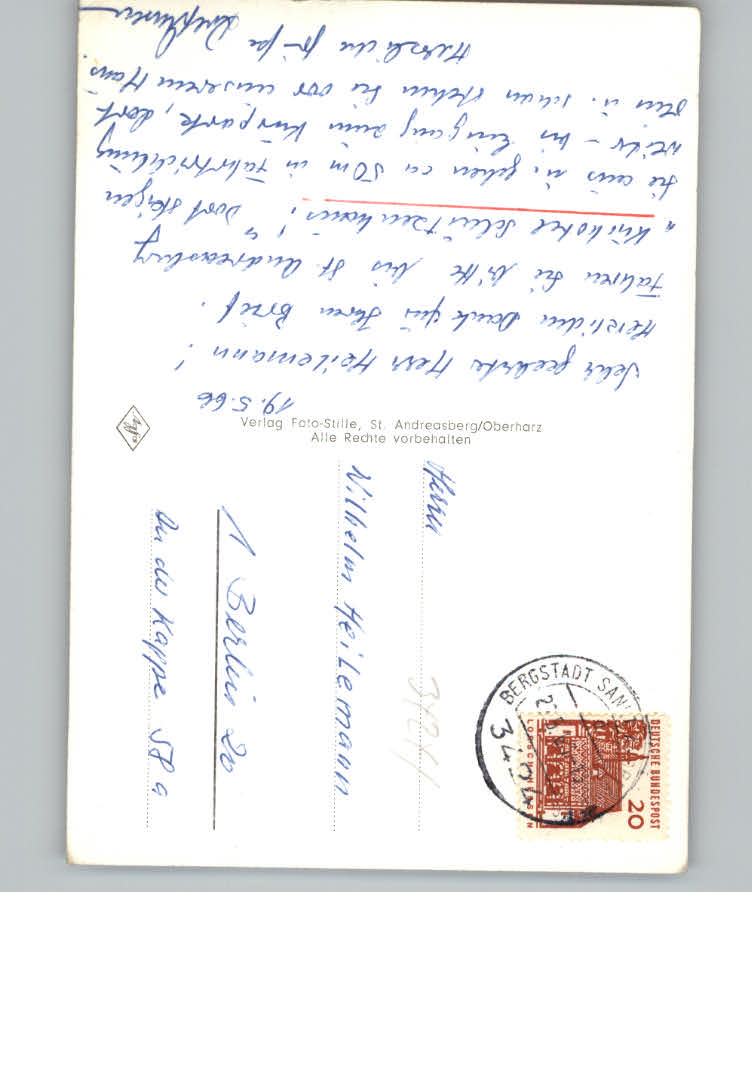 19.5.66
Sehr geehrter Herr Heilemann!
Herzlichen Dank für Ihren Brief.
Fahren Sie bitte bis St. Andreasberg
"Kurhotel Schützenhaus", Dort steigen
Sie aus u. gehen ca 50m in Fahrtrichtung
weiter - bis Eingang zum Kurpark, dort
u. schon stehen Sie vor unserem Haus.
Herzliche Grüße
Verlag Foto-Stille, St. Andreasberg/Oberharz
Alle Rechte vorbehalten
Herrn
Wilhelm Heilemann
1 Berlin 20
An der Kappe 58a
DEUTSCHE BUNDESPOST
20
BERGSTADT SAN